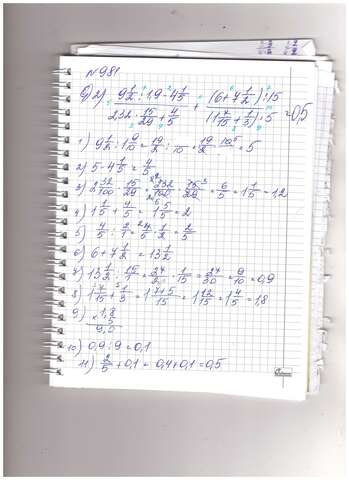 № 981
2) (9 1/2 : 1,9 - 4 1/5) / (2,32 · 15/29 + 4/5) + ((6 + 7 1/2) : 15) / ((1 7/15 + 1/3) · 5) = 0,5
1) 9 1/2 : 1 9/10 = 19/2 : 19/10 = 19/2 · 10/19 = 5
2) 5 - 4 1/5 = 4/5
3) 2 32/100 · 15/29 = 232/100 · 15/29 = 6/5 = 1 1/5 = 1,2
4) 1 1/5 + 4/5 = 1 5/5 = 2
5) 4/5 : 2/1 = 4/5 · 1/2 = 2/5
6) 6 + 7 1/2 = 13 1/2
7) 13 1/2 : 15/1 = 27/2 · 1/15 = 27/30 = 9/10 = 0,9
8) 1 7/15 + 1/3 = 1 7+5/15 = 1 12/15 = 1 4/5 = 1,8
9) × 1,8
5
9,0
10) 0,9 : 9 = 0,1
11) 2/5 + 0,1 = 0,4 + 0,1 = 0,5